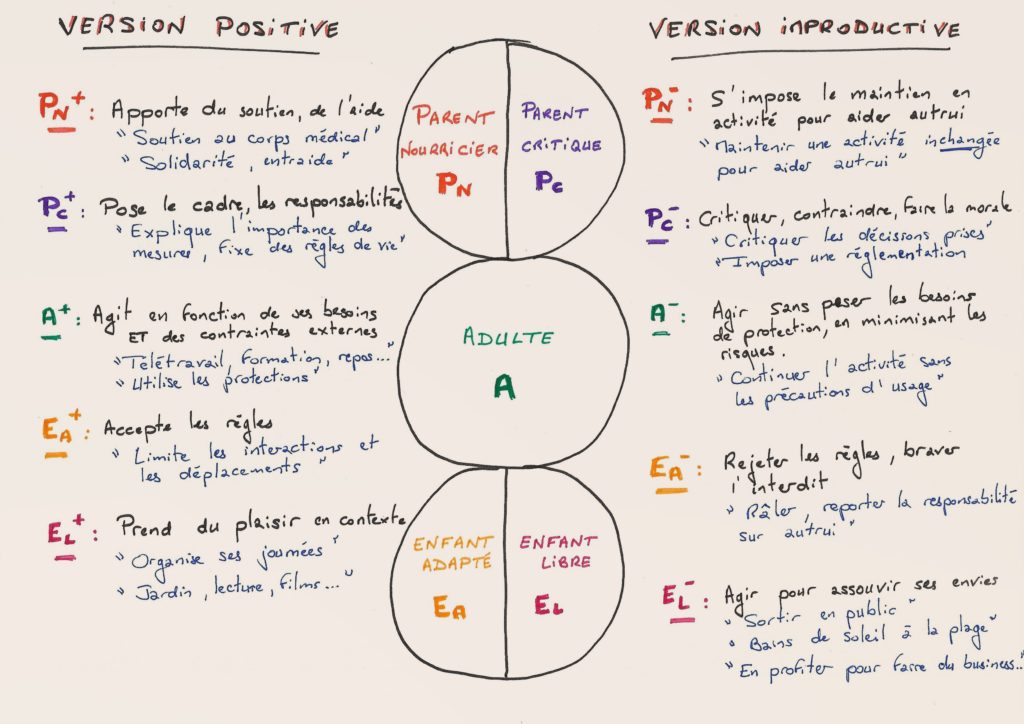 VERSION POSITIVE
PN+ : Apporte du soutien, de l'aide
"Soutien au corps médical"
"Solidarité, entraide"
PC+ : Pose le cadre, les responsabilités
"Explique l'importance des
mesures, fixe des règles de vie"
A+ : Agit en fonction de ses besoins
ET des contraintes externes
"Télétravail, formation, repos..."
"Utilise les protections"
EA+ : Accepte les règles
"Limite les interactions et
les déplacements"
EL+ : Prend du plaisir en contexte
"Organise ses journées"
"Jardin, lecture, films..."
PARENT
NOURRICIER
PN
PARENT
CRITIQUE
PC
ADULTE
A
ENFANT
ADAPTÉ
EA
ENFANT
LIBRE
EL
VERSION IMPRODUCTIVE
PN- : S'impose le maintien en
activité pour aider autrui
"Maintenir une activité inchangée
pour aider autrui"
PC- : Critiquer, contraindre, faire la morale
"Critiquer les décissions prises"
"Imposer une réglementation
A- : Agir sans peser les besoins
de protection, en minimisant les
risques.
"Continuer l'activité sans
les précautions d'usage"
EA- : Rejeter les règles, braver
l'interdit
"Râler, reporter la responsabilité
sur autrui"
EL- : Agir pour assouvir ses envies
"Sortir en public"
"Bains de soleil à la plage"
"En profiter pour faire du business..."